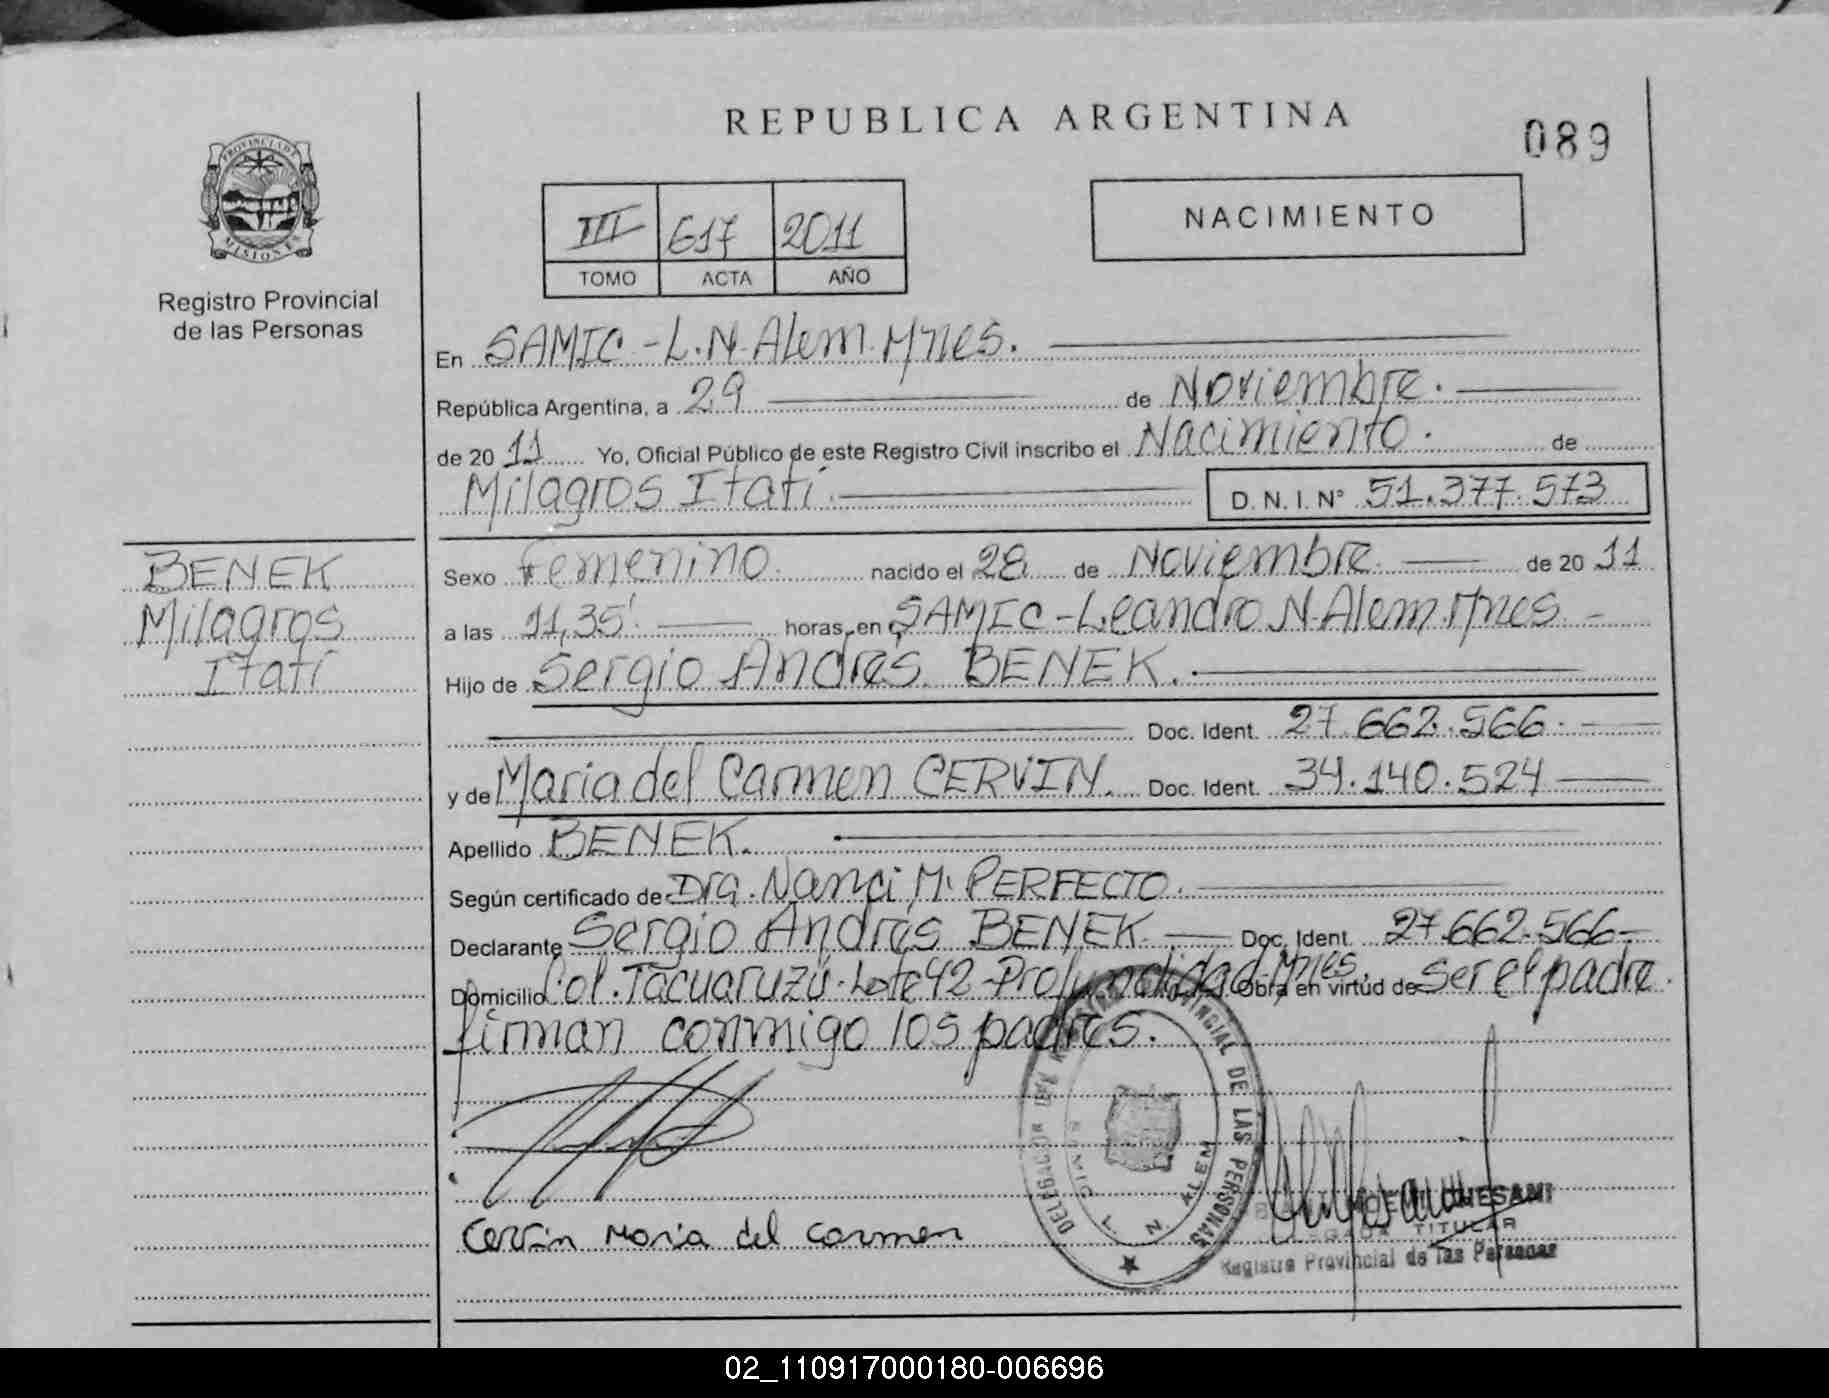 REPUBLICA ARGENTINA
089
PROVINCIA DE
MISIONES
Registro Provincial
de las Personas
III 617 2011
TOMO ACTA AÑO
NACIMIENTO
En SAMIC - L.N. Alem. Mnes.
República Argentina, a 29 de Noviembre.
de 20 11 Yo, Oficial Público de este Registro Civil inscribo el Nacimiento. de
Milagros Itatí. D. N. I. Nº 51.377.573
BENEK
Milagros
Itatí
Sexo Femenino. nacido el 28 de Noviembre. de 20 11
a las 11,35' horas, en SAMIC - Leandro N. Alem. Mnes. -
Hijo de Sergio Andrés BENEK.
Doc. Ident. 27.662.566.
y de Maria del Carmen CERVIN. Doc. Ident. 34.140.524
Apellido BENEK.
Según certificado de Dra. Nanci M. PERFECTO.
Declarante Sergio Andrés BENEK Doc. Ident. 27.662.566.
Domicilio Col. Tacuaruzú - Lote 42 - Profundidad - Mnes. Obra en virtud de ser el padre.
firman conmigo los padres.
PROVINCIAL DE LAS PERSONAS
DELEGACION
SAMIC L. N. ALEM
Cervin Maria del Carmen
TITULAR
Registro Provincial de las Personas
02_110917000180-006696